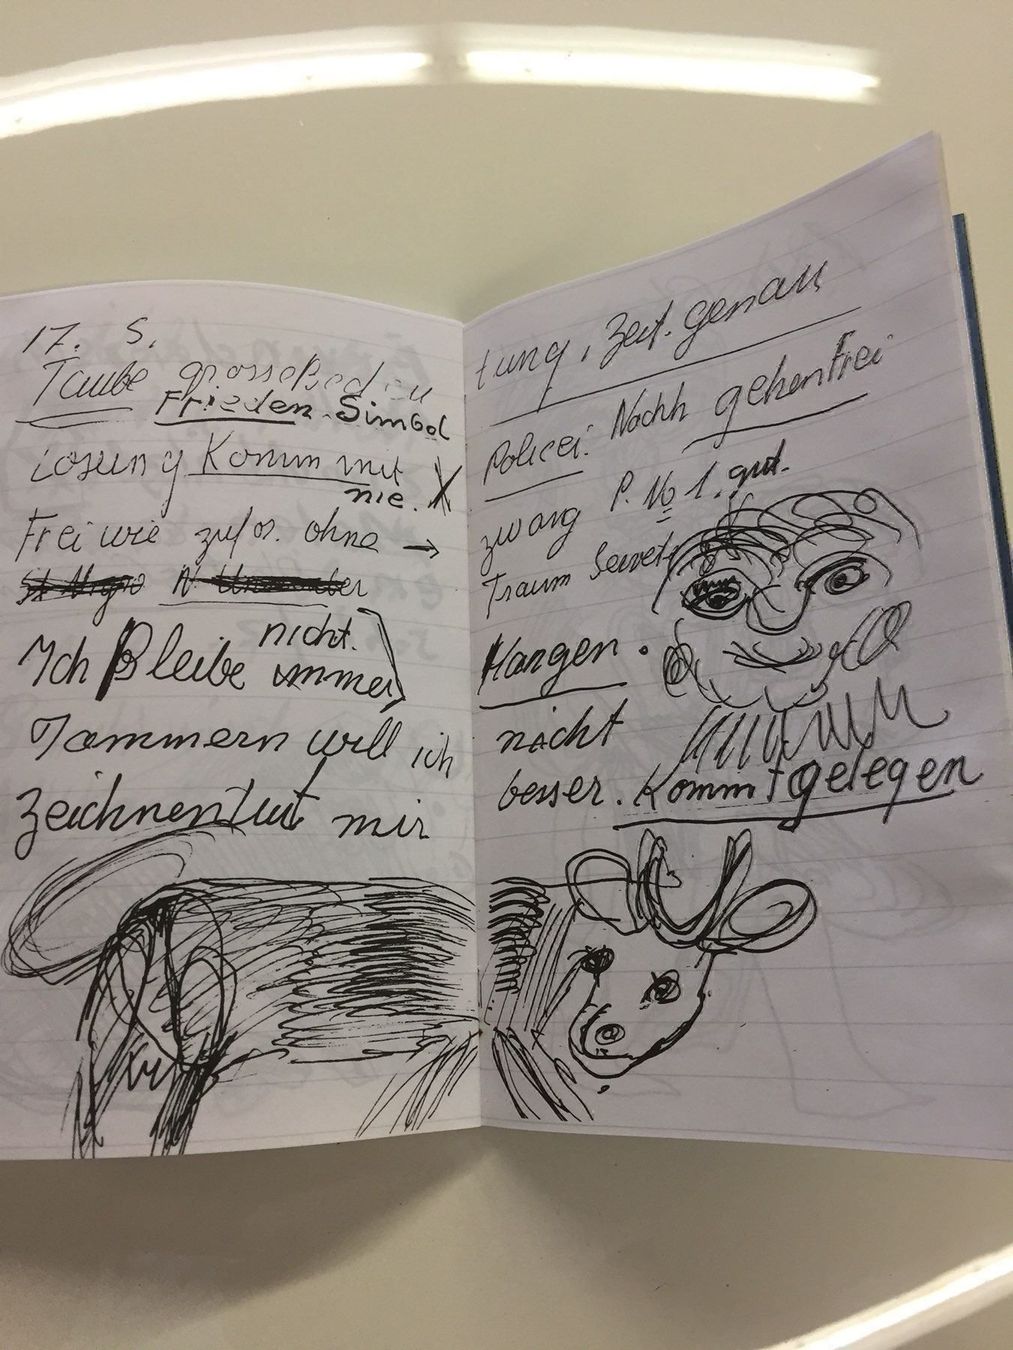 17. S.
Taube grosse
Frieden. Simbol
Losung Komm mit
nie. X
Frei wie ohne →
nicht.
Ich Bleibe immer
Jammern will ich
Zeichnen tut mir
tung, Zeit. genau
Policei. Nachh gehen Frei
zwang P. 16 1. gut.
Traum
Hangen.
nicht
besser. Kommt gelegen